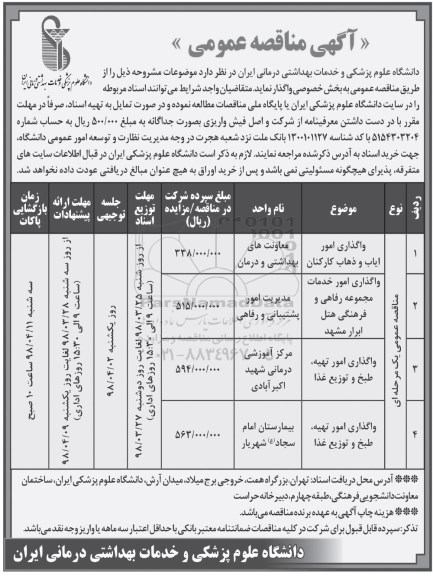 « آگهی مناقصه عمومی »
دانشگاه علوم پزشکی و خدمات بهداشتی درمانی ایران
دانشگاه علوم پزشکی و خدمات بهداشتی درمانی ایران در نظر دارد موضوعات مشروحه ذیل را از
طریق مناقصه عمومی به بخش خصوصی واگذار نماید. متقاضیان واجد شرایط می توانند اسناد مربوطه
را در سایت دانشگاه علوم پزشکی ایران یا پایگاه ملی مناقصات مطالعه نموده و در صورت تمایل به تهیه اسناد، صرفاً در مهلت
مقرر با در دست داشتن معرفینامه از شرکت و اصل فیش واریزی بصورت جداگانه به مبلغ ۵۰۰/۰۰۰ ریال به حساب شماره
۵۱۵۴۳۰۳۲۰۴ با کد شناسه ۱۳۰۰۱۰۱۱۲۷ بانک ملت نزد شعبه هجرت در وجه مدیریت نظارت و توسعه امور عمومی دانشگاه،
جهت خرید اسناد به آدرس ذکر شده مراجعه نمایند. لازم به ذکر است دانشگاه علوم پزشکی ایران در قبال اطلاعات سایت های
متفرقه، پذیرای هیچگونه مسئولیتی نمی باشد و پس از خرید اوراق به هیچ عنوان مبالغ دریافتی عودت داده نخواهد شد.
ردیف
نوع
موضوع
نام واحد
مبلغ سپرده شرکت در مناقصه/مزایده (ریال)
مهلت توزیع اسناد
جلسه توجیهی
مهلت ارائه پیشنهادات
زمان بازگشایی پاکات
مناقصه عمومی یک مرحله ای
۱ واگذاری امور ایاب و ذهاب کارکنان معاونت های بهداشتی و درمان ۳۳۸/۰۰۰/۰۰۰
۲ واگذاری امور خدمات مجموعه رفاهی و فرهنگی هتل ابرار مشهد مدیریت امور پشتیبانی و رفاهی ۵۱۵/۰۰۰/۰۰۰
۳ واگذاری امور تهیه، طبخ و توزیع غذا مرکز آموزشی درمانی شهید اکبرآبادی ۵۹۴/۰۰۰/۰۰۰
۴ واگذاری امور تهیه، طبخ و توزیع غذا بیمارستان امام سجاد(ع) شهریار ۵۶۳/۰۰۰/۰۰۰
از روز شنبه ۹۸/۰۳/۲۵ لغایت روز دوشنبه ۹۸/۰۳/۲۷
(ساعت ۹ الی ۱۵:۳۰ روزهای اداری)
روز یکشنبه ۹۸/۰۴/۰۲
از روز سه شنبه ۹۸/۰۳/۲۸ لغایت روز یکشنبه ۹۸/۰۴/۰۹
(ساعت ۹ الی ۱۵:۳۰ روزهای اداری)
سه شنبه ۹۸/۰۴/۱۱ ساعت ۱۰ صبح
۰۲۱-۸۸۳۴۹۶۷۰
*** آدرس محل دریافت اسناد: تهران، بزرگراه همت، خروجی برج میلاد، میدان آرش، دانشگاه علوم پزشکی ایران، ساختمان
معاونت دانشجویی فرهنگی، طبقه چهارم، دبیرخانه حراست
*** هزینه چاپ آگهی به عهده برنده مناقصه می باشد.
تذکر: سپرده قابل قبول برای شرکت در کلیه مناقصات ضمانتنامه معتبر بانکی با حداقل اعتبار سه ماهه یا واریز وجه نقد می باشد.
دانشگاه علوم پزشکی و خدمات بهداشتی درمانی ایران